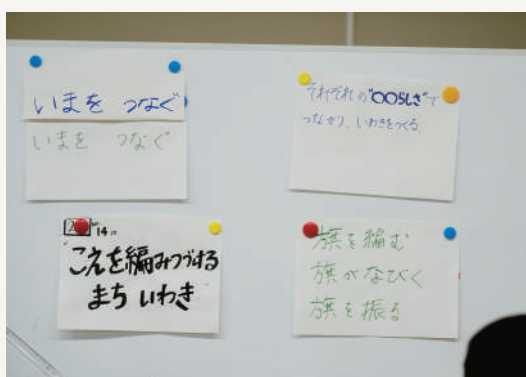 いまを つなぐ
いまを つなぐ
それぞれの"〇〇らしさ"で
つながり、いわきをつくる。
14
こえを編みつづける
まち いわき
旗を編む
旗がなびく
旗を振る